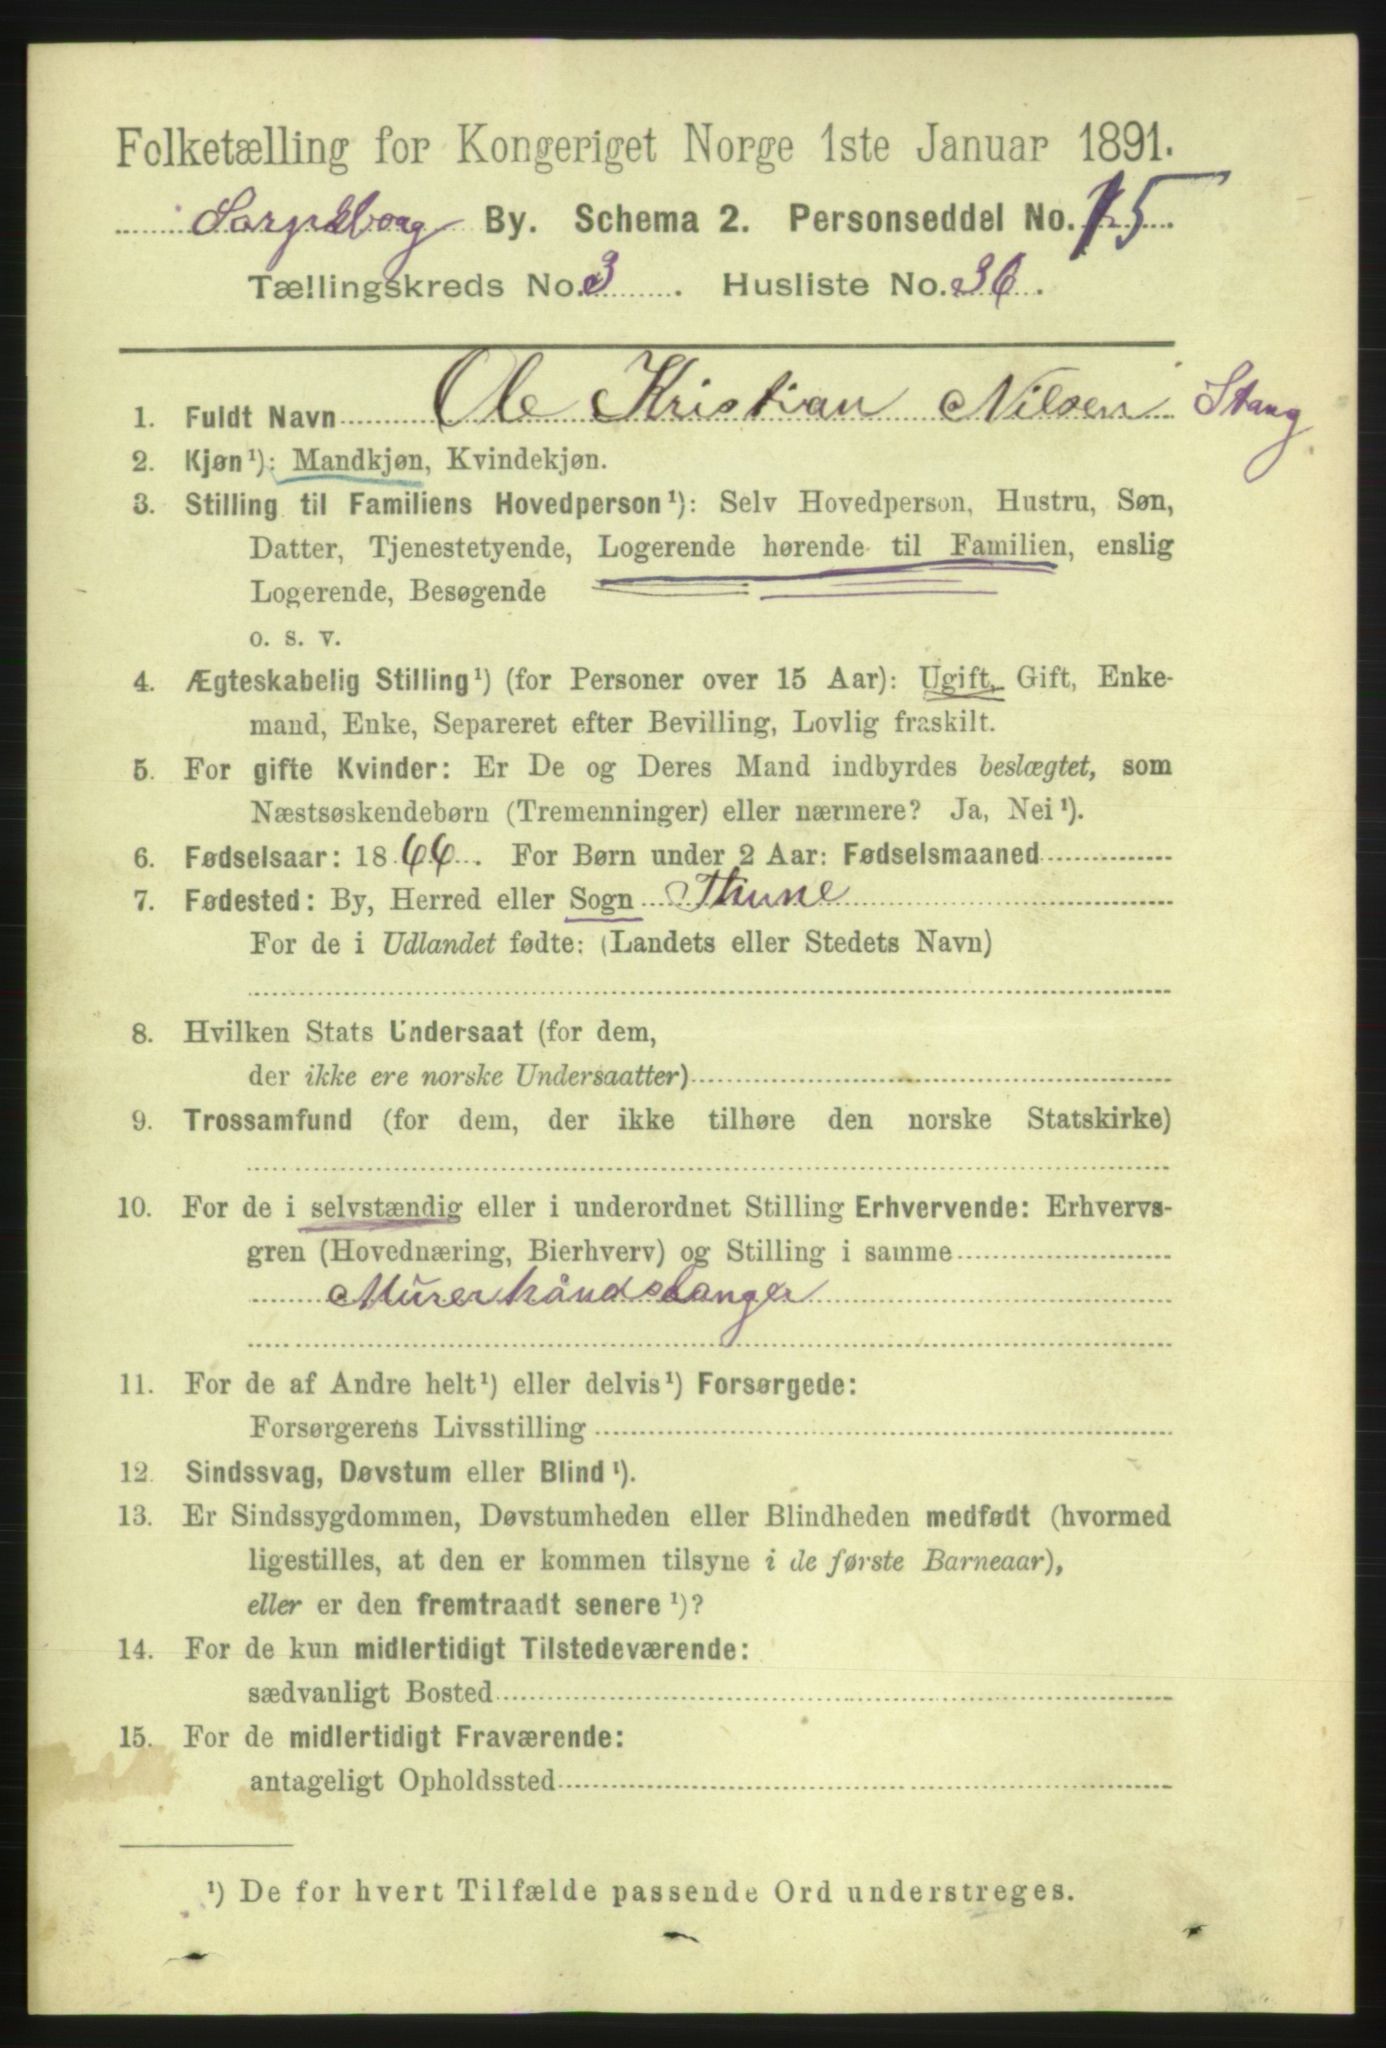 Folketælling for Kongeriget Norge 1ste Januar 1891.
Sarpsborg By. Schema 2. Personseddel No. 15
Tællingskreds No. 3. Husliste No. 36.
1. Fuldt Navn Ole Kristian Nilsen Stang
2. Kjøn¹): Mandkjøn, Kvindekjøn.
3. Stilling til Familiens Hovedperson¹): Selv Hovedperson, Hustru, Søn,
Datter, Tjenestetyende, Logerende hørende til Familien, enslig
Logerende, Besøgende
o. s. v.
4. Ægteskabelig Stilling¹) (for Personer over 15 Aar): Ugift, Gift, Enke-
mand, Enke, Separeret efter Bevilling, Lovlig fraskilt.
5. For gifte Kvinder: Er De og Deres Mand indbyrdes beslægtet, som
Næstsøskendebørn (Tremenninger) eller nærmere? Ja, Nei¹).
6. Fødselsaar: 1866. For Børn under 2 Aar: Fødselsmaaned
7. Fødested: By, Herred eller Sogn Thune
For de i Udlandet fødte: (Landets eller Stedets Navn)
8. Hvilken Stats Undersaat (for dem,
der ikke ere norske Undersaatter)
9. Trossamfund (for dem, der ikke tilhøre den norske Statskirke)
10. For de i selvstændig eller i underordnet Stilling Erhvervende: Erhvervs-
gren (Hovednæring, Bierhverv) og Stilling i samme
Murerhåndslanger
11. For de af Andre helt¹) eller delvis¹) Forsørgede:
Forsørgerens Livsstilling
12. Sindssvag, Døvstum eller Blind¹).
13. Er Sindssygdommen, Døvstumheden eller Blindheden medfødt (hvormed
ligestilles, at den er kommen tilsyne i de første Barneaar),
eller er den fremtraadt senere¹)?
14. For de kun midlertidigt Tilstedeværende:
sædvanligt Bosted
15. For de midlertidigt Fraværende:
antageligt Opholdssted
¹) De for hvert Tilfælde passende Ord understreges.